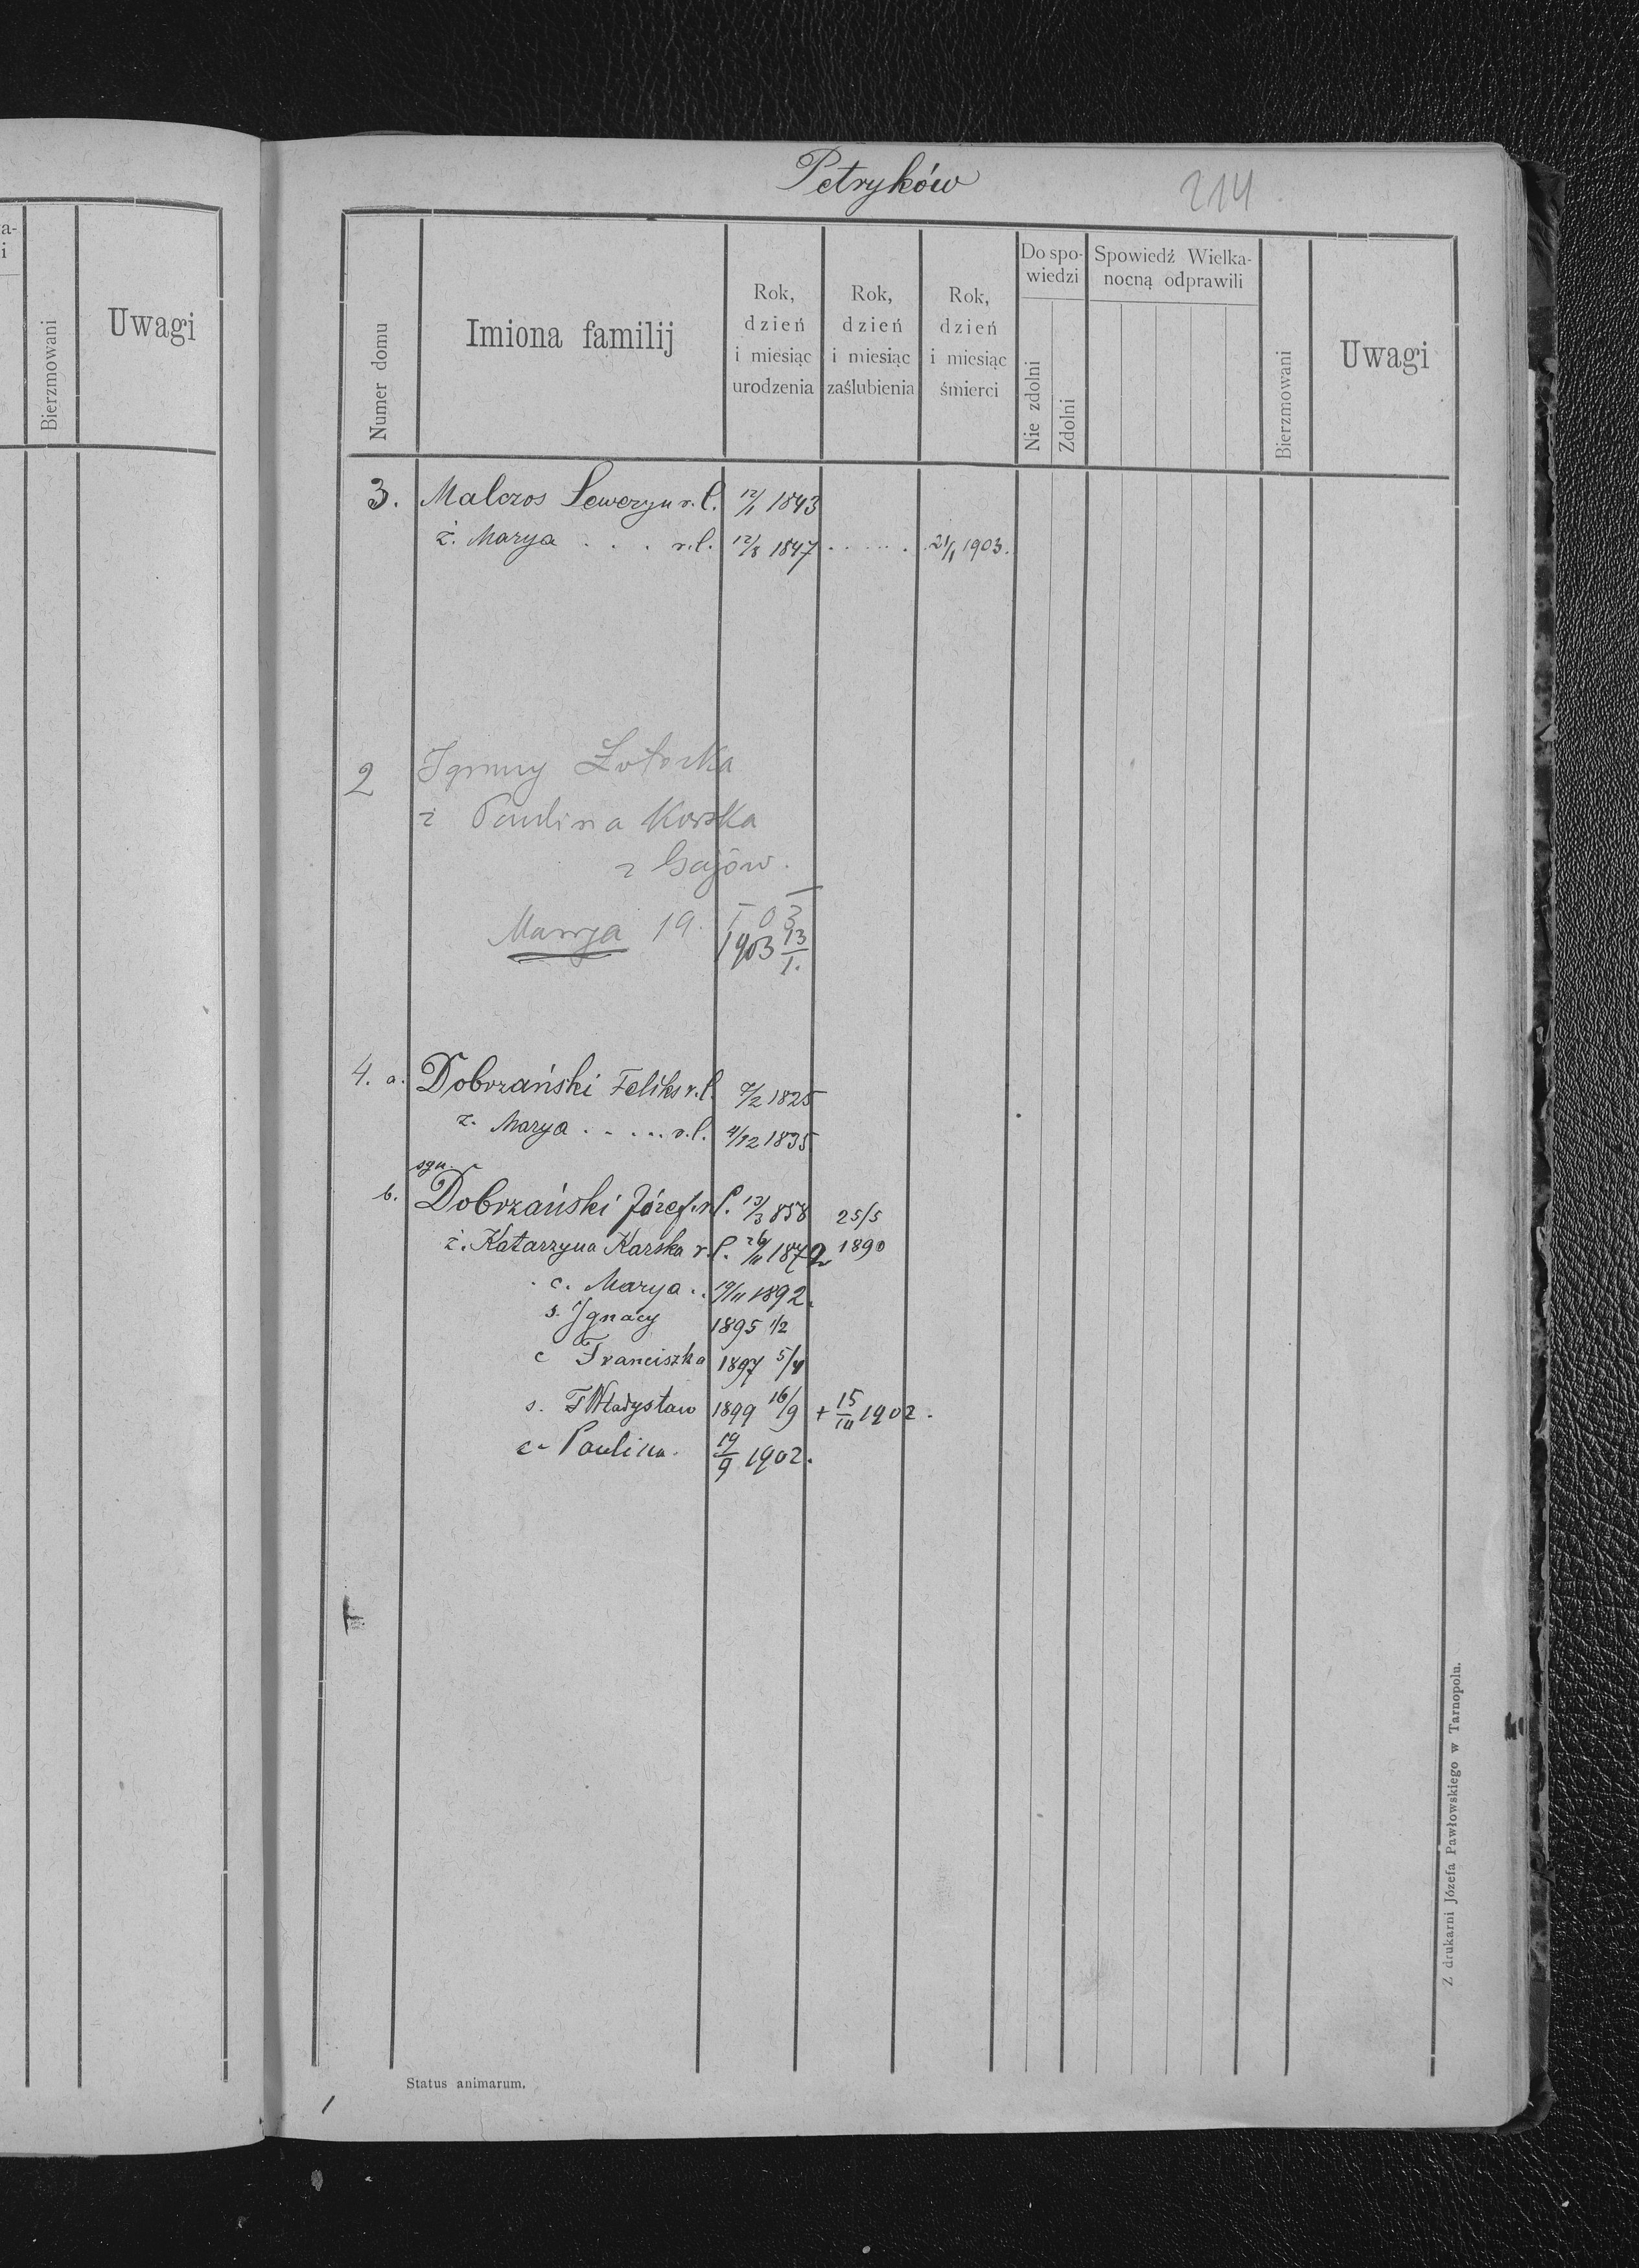 Petryków
214
a-
i
Bierzmowani
Uwagi
Numer domu
Imiona familij
Rok,
dzień
i miesiąc
urodzenia
Rok,
dzień
i miesiąc
zaślubienia
Rok,
dzień
i miesiąc
śmierci
Do spo-
wiedzi
Nie zdolni
Zdolni
Spowiedź Wielka-
nocną odprawili
Bierzmowani
Uwagi
3. Malczos Seweryn r.l. 12/1 1843
ż. Marya . . . r.l. 12/8 1847 . . . . . . 21/1 1903.
2 Ignacy
ż Paulina Karska
z Gajów.
Marya 19. I 03
1903 13/1.
4. a. Dobrzański Feliks r.l. 7/2 1825
ż. Marya . . . . . r.l. 4/12 1835
syn.
b. Dobrzański Józef r.l. 13/3 858 25/5
ż. Katarzyna Karska r.l. 26/11 1872 1890
c. Marya . . 19/11 1892.
s. Ignacy 1895 1/2
c Franciszka 1897 5/4
s. Władysław 1899 16/9 + 15/10 1902.
c. Paulina. 19/9 1902.
Status animarum.
Z drukarni Józefa Pawłowskiego w Tarnopolu.